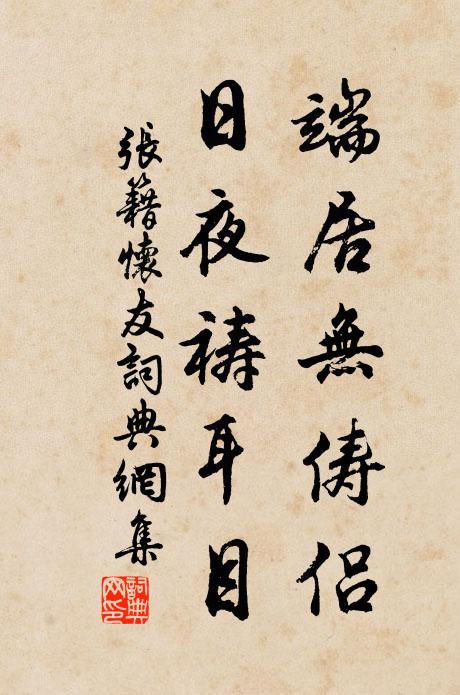 端居無儔侶
日夜祷耳目
張籍懷友詞典網集
詞典網印